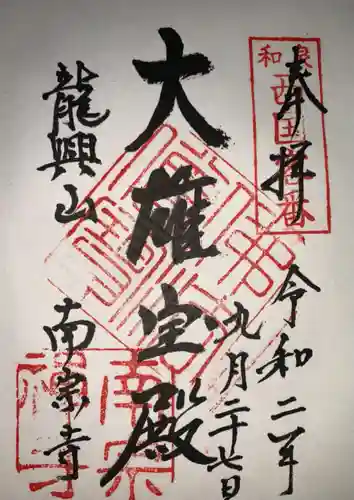 奉拝
令和二年
九月二十七日
大雄宝殿
龍興山
南宗寺